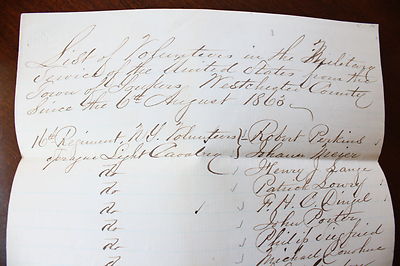 List of Volunteers in the Military
service of the United States from the
Town of Yonkers Westchester County
since the 6th August 1863
16th Regiment N.Y. Volunteers } Robert Perkins
Sprague Light Cavalry } Johann Meyer
do } Henry J. Lange
do } Patrick Lowry
do } F. H. C. Dingel
do } John Porter
do } Philip Siegfried
do } Michael Donohue